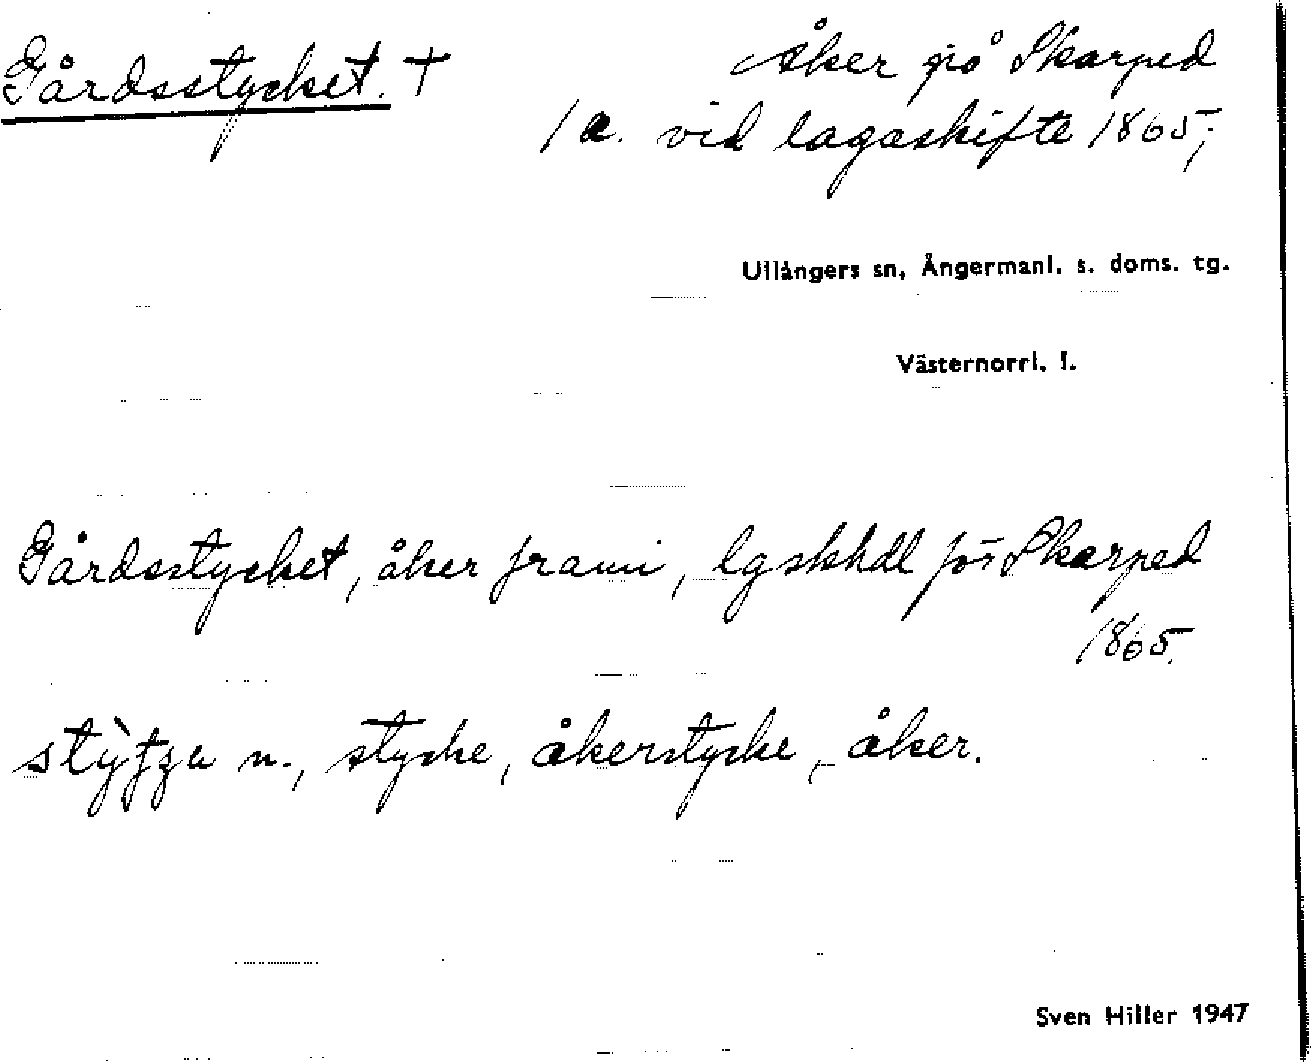 Gårdsstycket. † Åker på Skarped
1a. vid lagaskifte 1865;
Ullångers sn, Ångermanl. s. doms. tg.
Västernorrl. l.
Gårdsstycket, åker frami, lgskhdl för Skarped
1865.
n., stycke, åkerstycke, åker.
Sven Hiller 1947